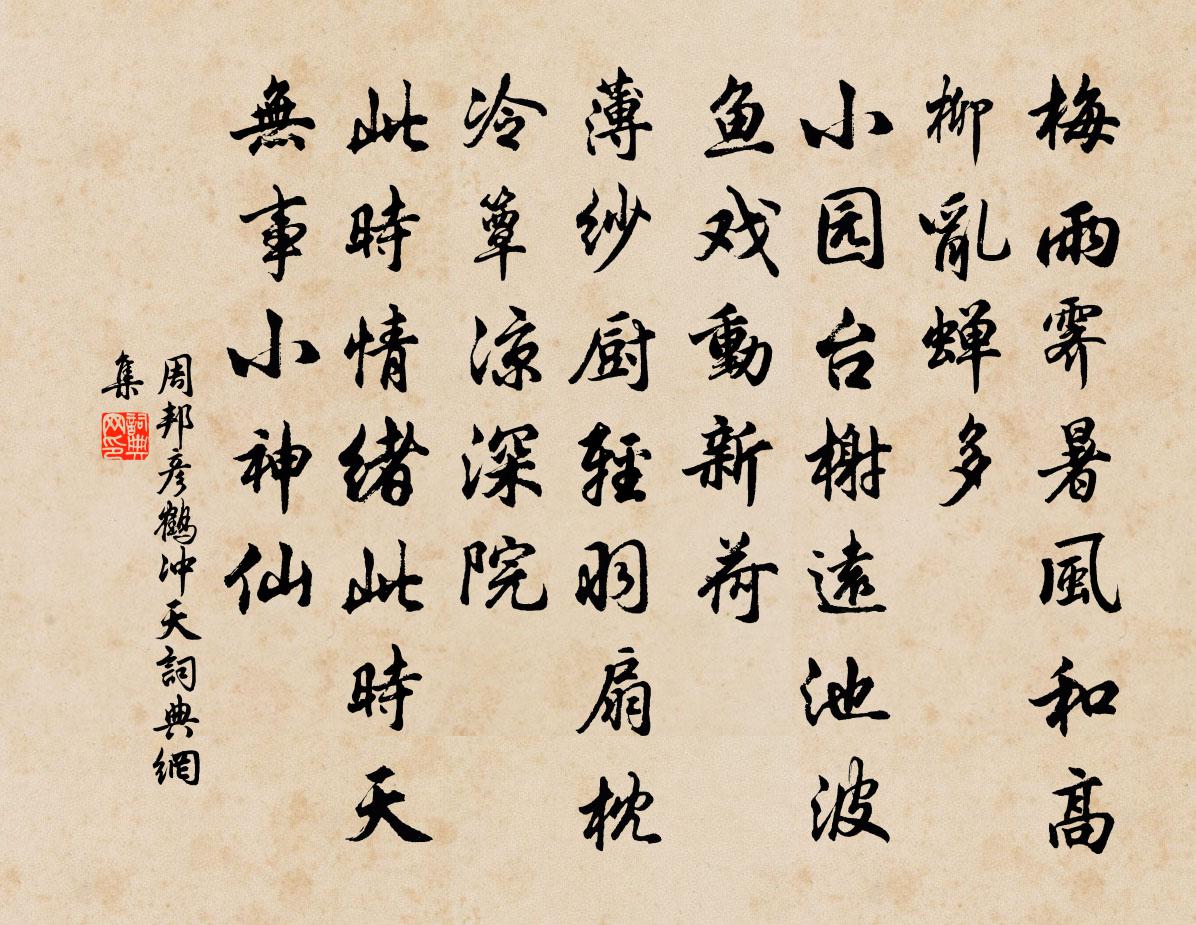 梅雨霁暑風和高
柳亂蝉多
小园台榭遠池波
鱼戏動新荷
薄紗厨輕羽扇枕
冷簟凉深院
此時情緒此時天
無事小神仙
周邦彦鶴冲天詞典網
集
詞典
网印